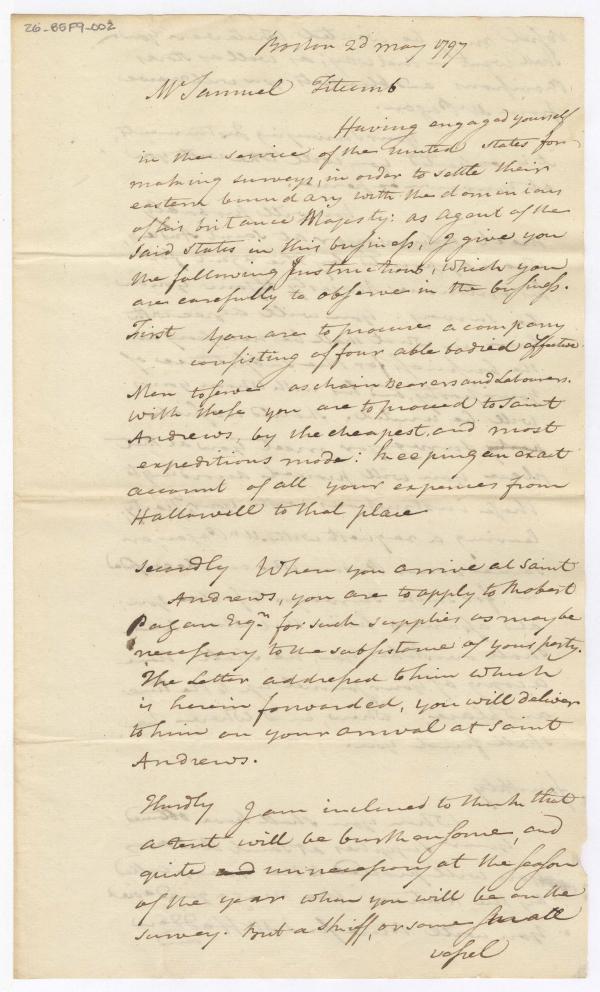 26-B5F9-002
Boston 2d may 1797
Mr Samuel Titcomb
Having engaged yourself
in the service of the united States for
making surveys, in order to settle their
eastern boundary with the dominions
of his britance Majesty: as agent of the
said States in this business, I give you
the following Instructions, which you
are carefully to observe in the business.
First you are to procure a company
consisting of four able bodied effective
Men to serve as chain Bearers and Labourers.
with these you are to proceed to Saint
Andrews, by the cheapest, and most
expeditious mode: keeping an exact
account of all your expences from
Hallowell to that place
Secondly When you arrive at Saint
Andrews, you are to apply to Robert
Pagan Esqr. for such supplies as may be
necessary to the subsistence of your party.
The Letter addressed to him which
is herein forwarded, you will deliver
to him on your arrival at Saint
Andrews.
Thirdly I am inclined to think that
a tent will be burthensome, and
quite and unnecessary at the season
of the year when you will be on the
survey. But a Skiff, or some small
vessel